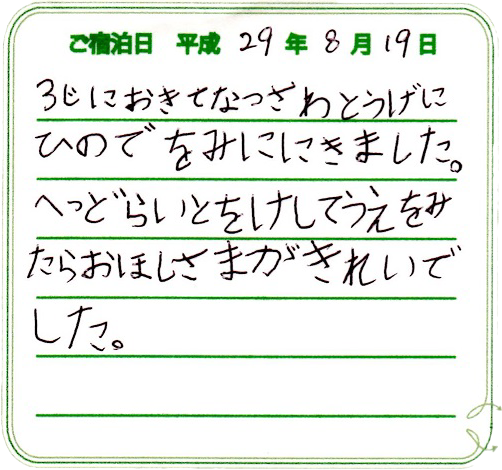 ご宿泊日 平成 29 年 8 月 19 日
3じにおきてなつざわとうげに
ひのでをみににきました。
へっどらいとをけしてうえをみ
たらおほしさまがきれいで
した。